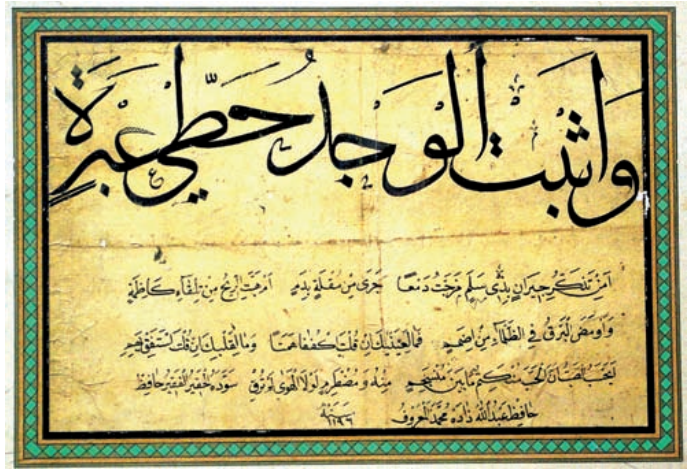 وَاثبَت الوَجدُ خطّي عَبرَة
اَمِنْ تَذَكُّرِ جيرَانٍ بِذِى سَلَمٍ مَزَجْتَ دَمْعًا جَرَى مِنْ مُقْلَةٍ بِدَمِ اَمْ هَبَّتِ الرِّيحُ مِنْ تِلْقَاءِ كَاظِمَةٍ
وَاَوْمَضَ الْبَرْقُ فِي الظَّلْمَاءِ مِنْ اِضَمِ فَمَا لِعَيْنَيْكَ اِنْ قُلْتَ اكْفُفَا هَمَتَا وَمَا لِقَلْبِكَ اِنْ قُلْتَ اسْتَفِقْ يَهِمِ
اَيَحْسَبُ الصَّبُّ اَنَّ الْحُبَّ مُنْكَتِمٌ مَا بَيْنَ مُنْسَجِمٍ مِنْهُ وَمُضْطَرِمِ لَوْلَا الْهَوَى لَمْ تُرِقْ سَوَّدَهُ الْحَقِيرُ الْفَقِيرُ حَافِظ
حَافِظ عَبْدُ اللّٰه زَادَه مُحَمَّد الْمَعْرُوف سَنَة ١١٩٦